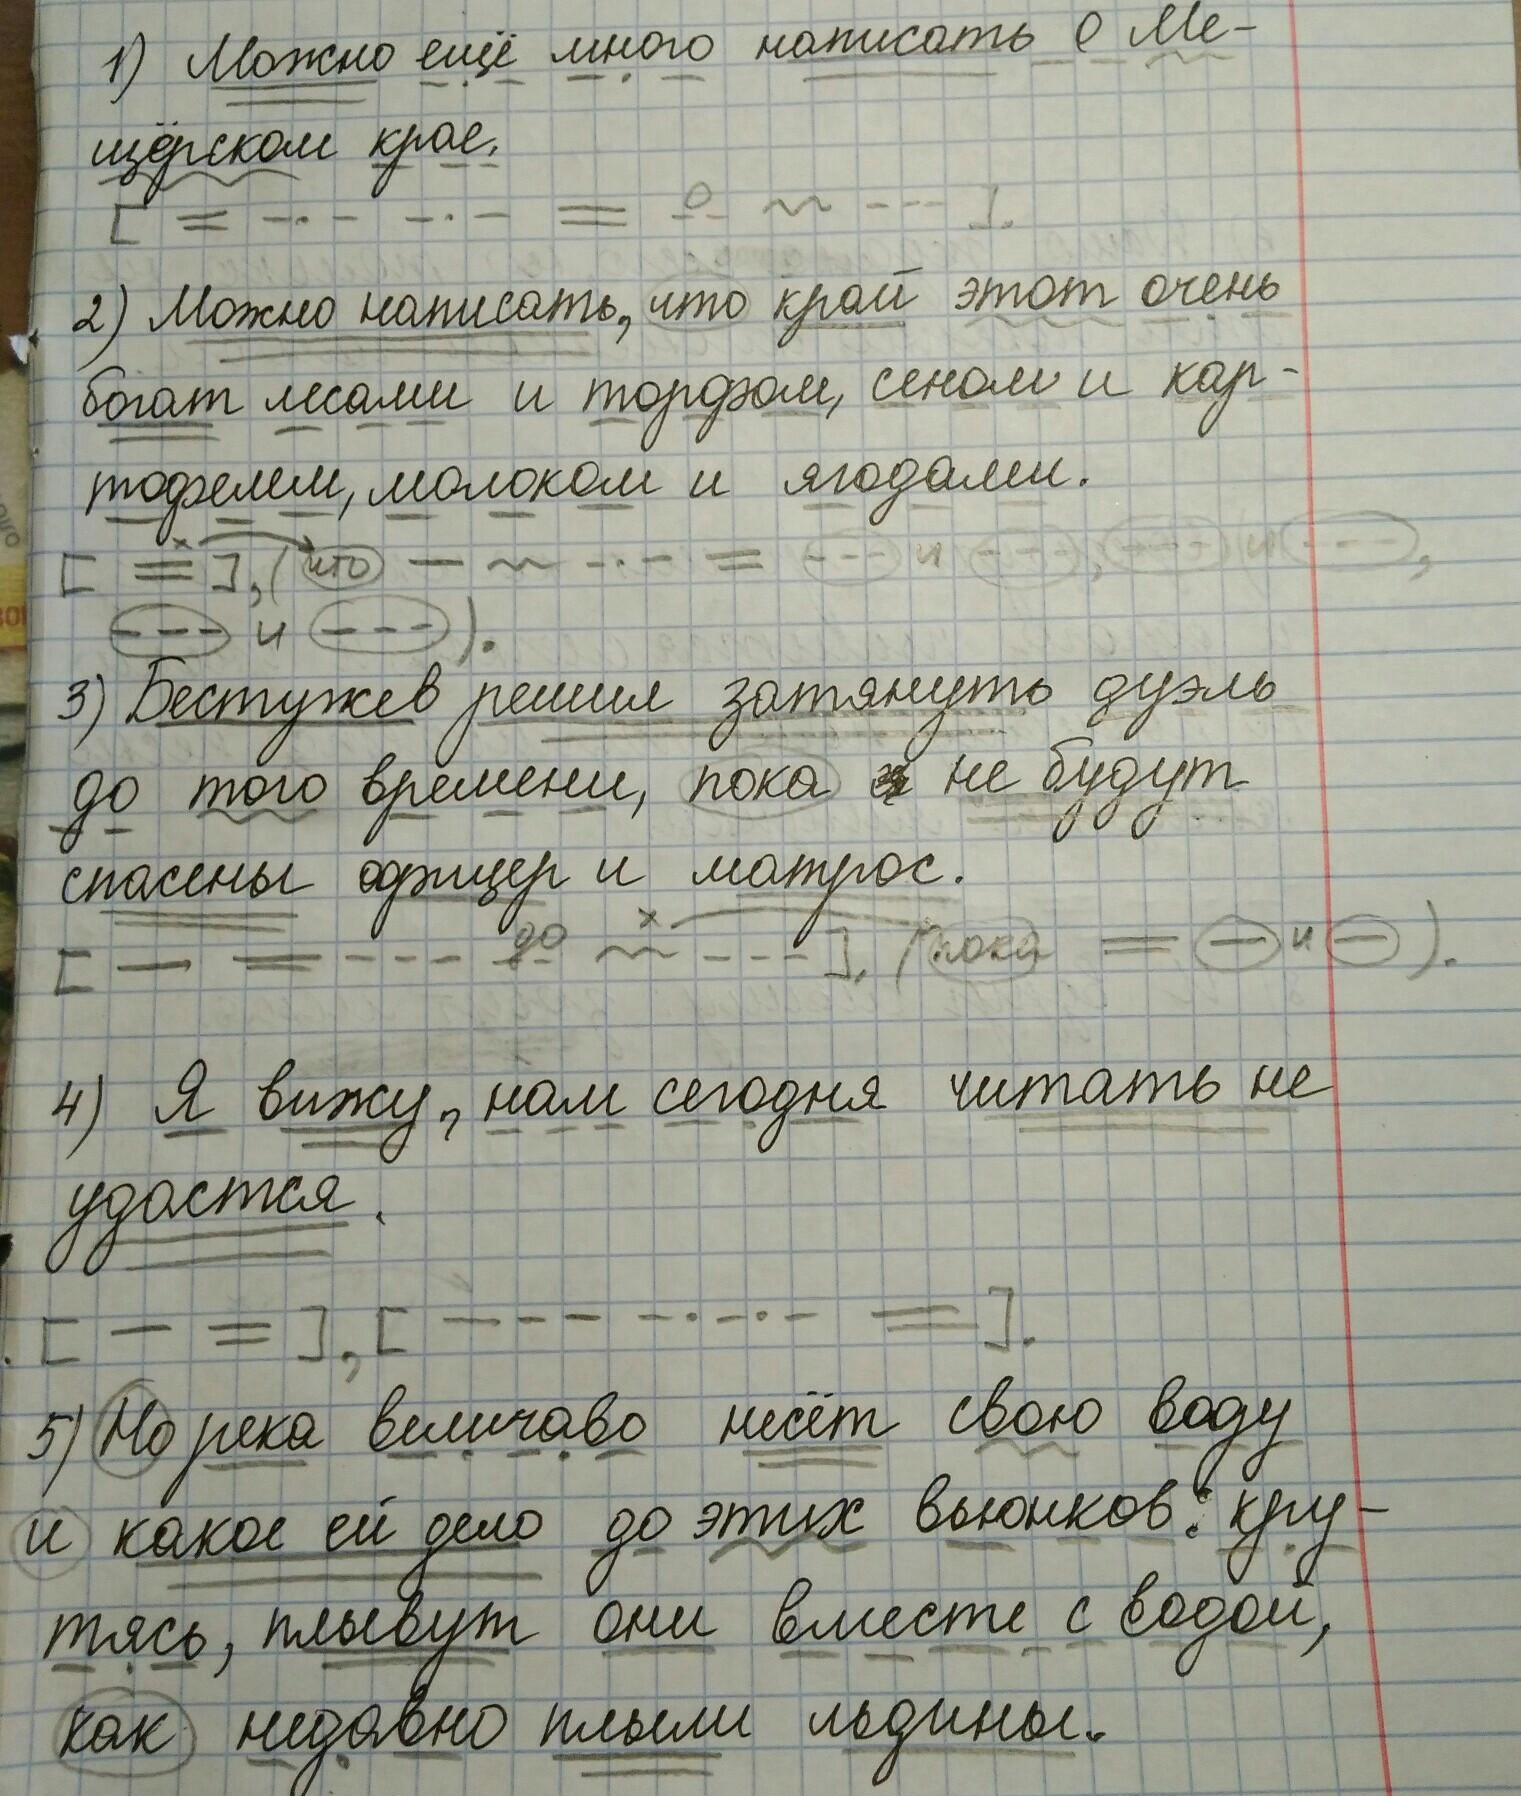 1) Можно ещё много написать о Ме-
щёрском крае.
[ о ].
2) Можно написать, что край этот очень
богат лесами и торфом, сеном и кар-
тофелем, молоком и ягодами.
[ × ], (что и , и ,
и ).
3) Бестужев решил затянуть дуэль
до того времени, пока не будут
спасены офицер и матрос.
[ до × ], (пока и ).
4) Я вижу, нам сегодня читать не
удастся.
[ ], [ ].
5) Но река величаво несёт свою воду
и какое ей дело до этих вьюнков: кру-
тясь, плывут они вместе с водой,
как недавно плыли льдины.